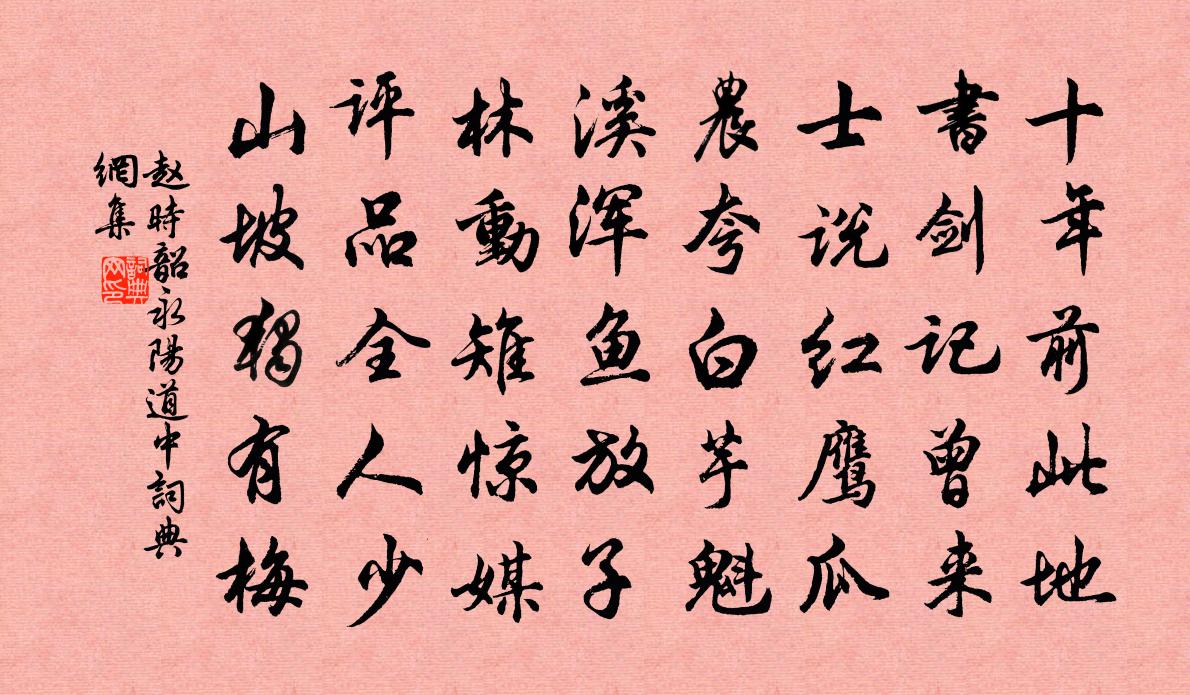 十年前此地
書剑记曾来
士说红鹰瓜
農夸白芋魁
溪浑鱼放子
林動雉惊媒
评品全人少
山坡独有梅
赵時韶永陽道中詞典
網集
詞典
网印